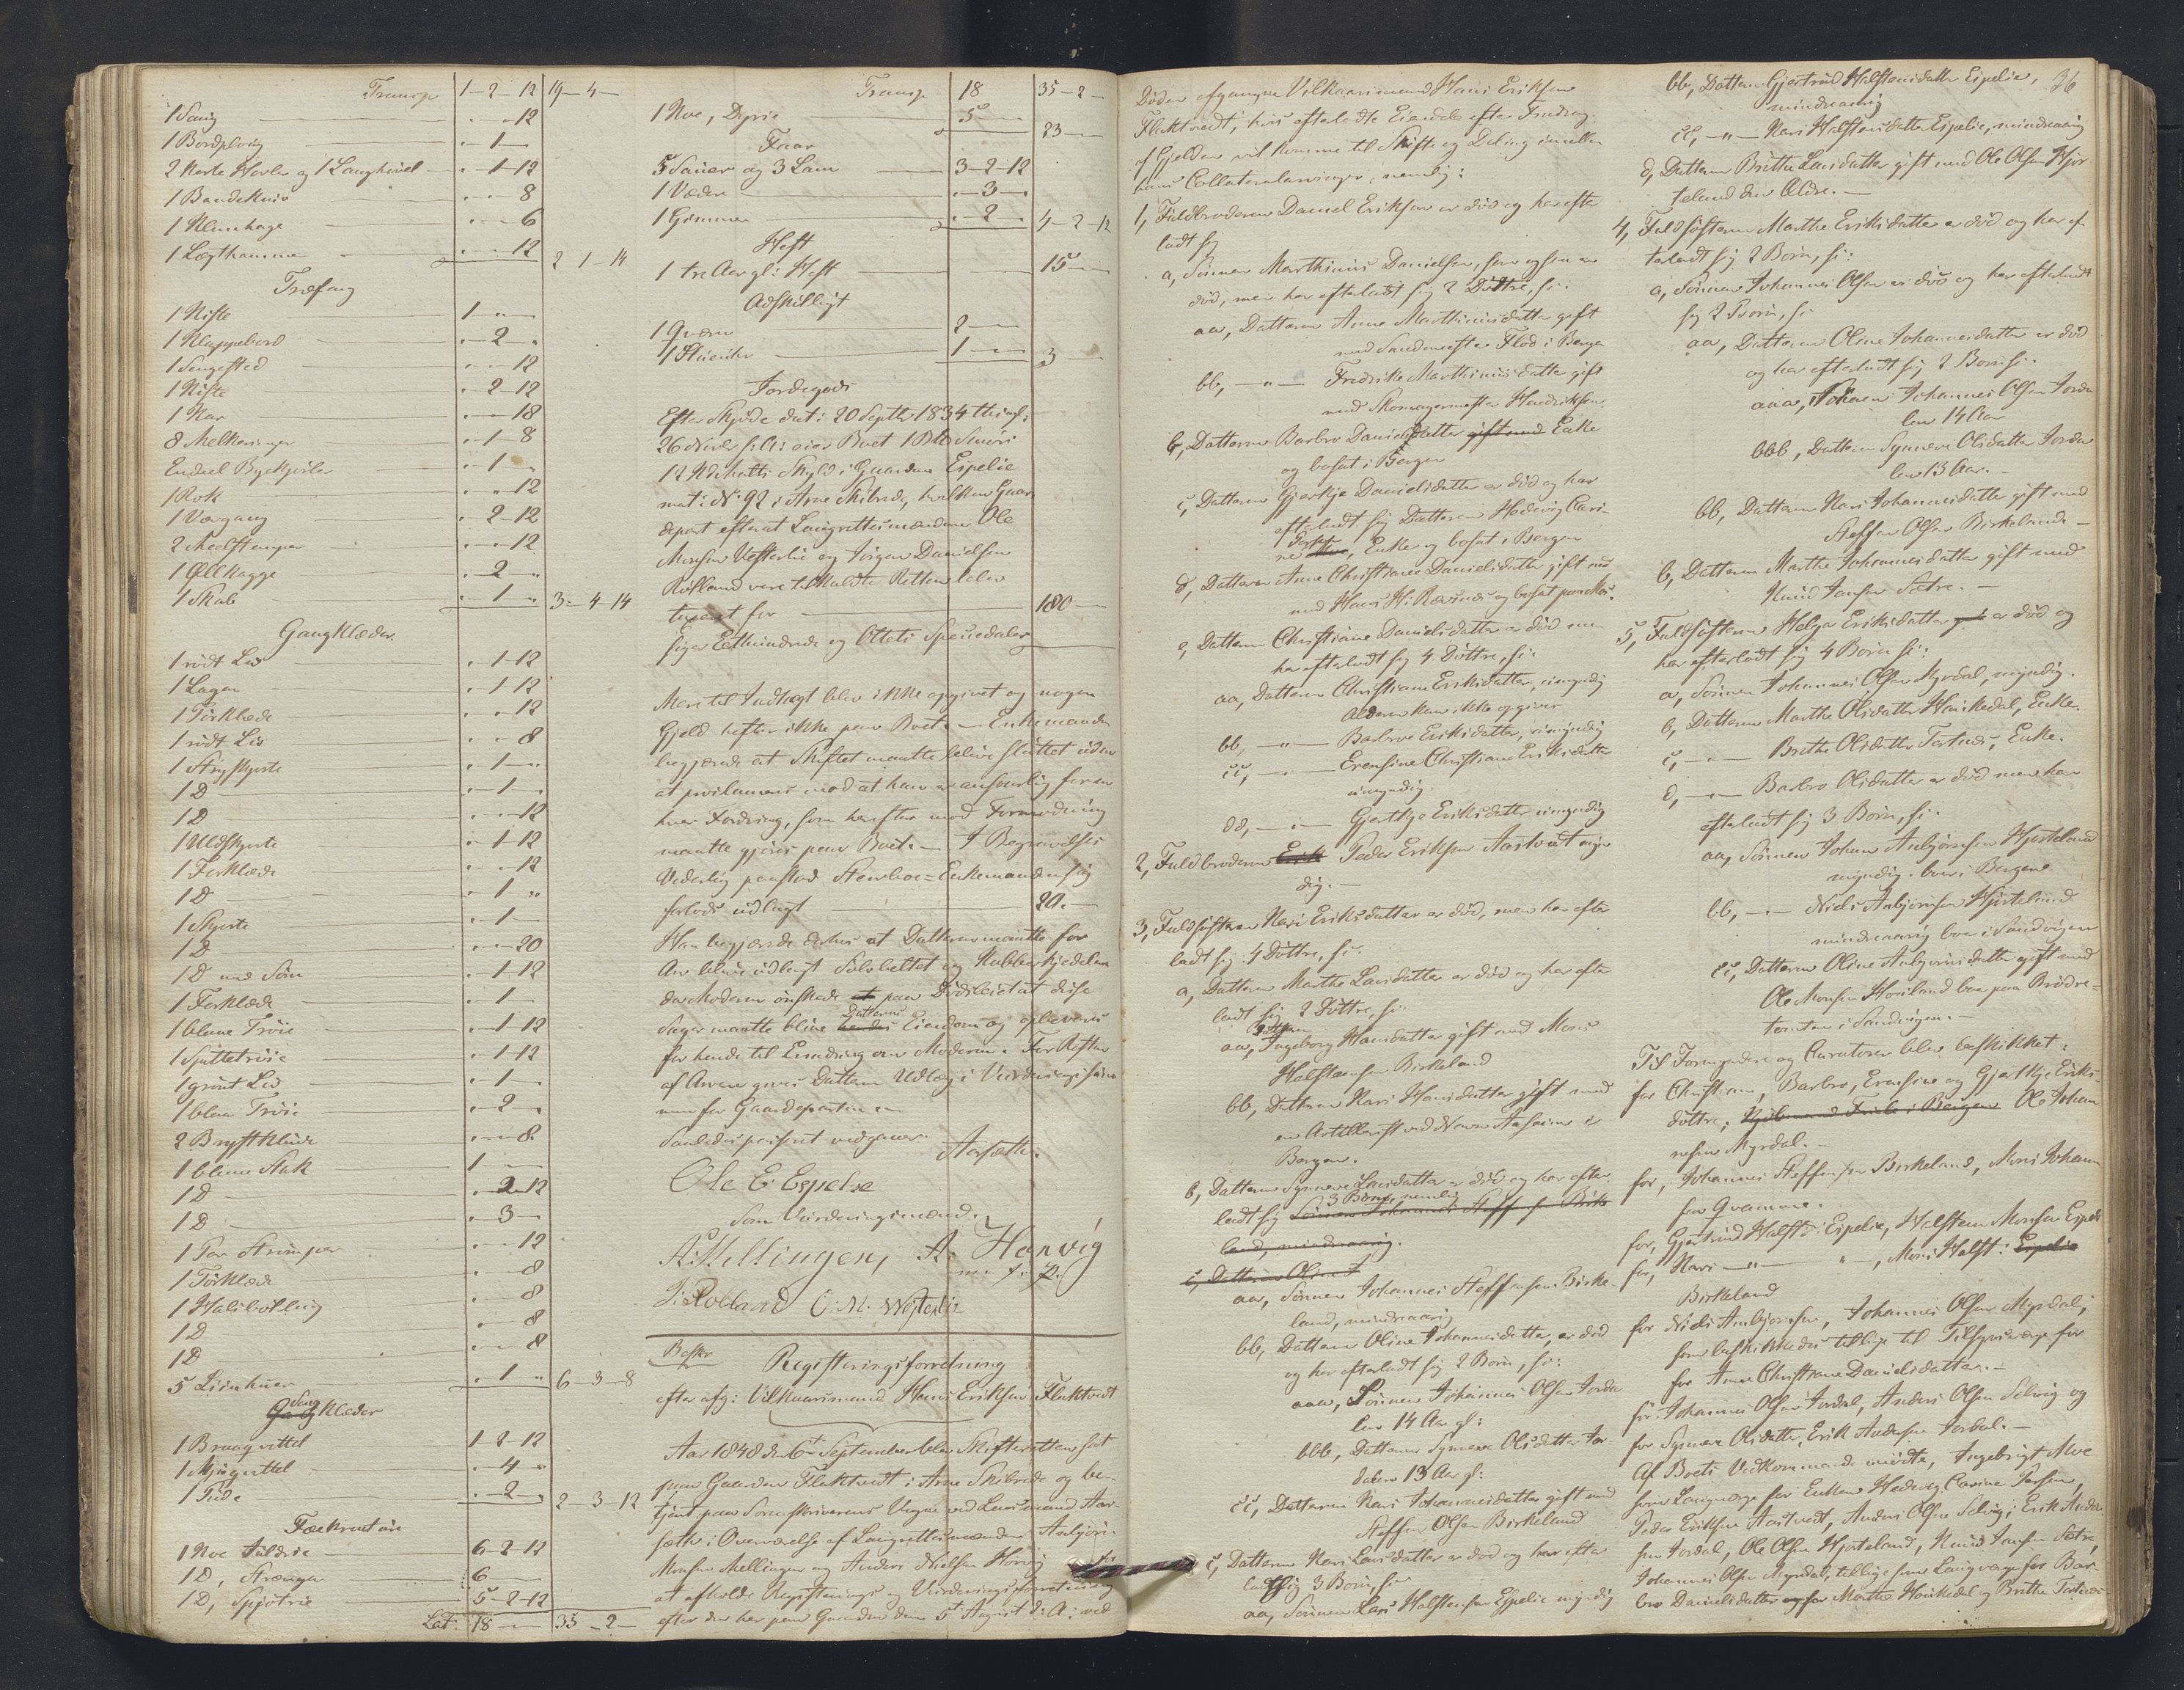 Transp 1-2-12 19-4-
1 Saug - - 12
1 Bordplovg - 1 -
2 Høvler og 1 Langhövel - 1-12
1 Baandkniv - - 8
1 - - 6
1 Lægthammer - - 12 2-1-14
Træfang
1 Kiste 1 - -
1 Klappebord - 2 -
1 Sengested - - 12
1 Kiste - 2-12
1 Kar - - 18
8 Melkeringer - 1-8
Endeel - 1 -
1 Rok - - 12
1 Vævgang - 2-12
2 - - 12
1 Øllkagge - 2 -
1 Skab - 1 - 3-4-14
Gangklæder
1 rödt Liv - 1-12
1 Lagen - 1-12
1 Törklæde - - 12
1 rödt Liv - - 8
1 Stryskjorte - 1 -
1 D - 1 -
1 D - - 12
1 Uldskjorte - 1-12
1 Forklæde - - 12
1 D - 1 -
1 Skjorte - 1 -
1 D - - 20
1 D med Sölv - 1-12
1 Forklæde - 1 -
1 blaae Tröie - 1-12
1 Spættetröie - 1-12
1 grönt Liv - 1 -
1 blaa Tröie - 2 -
2 Brystklude - - 8
1 blaae Stak 1 - -
1 D - 2-12
1 D - 3 -
1 Par Strömper - - 12
1 Törklæde - - 8
1 - - 8
1 D - - 8
1 D - - 8
5 Liinhuer - 1 - 6-3-8
Sengklæder
1 1-2-12
1 - 4 -
1 Pude - 2 - 2-3-12
Fækreature
1 Koe 6-2-12
1 D, 6 - -
1 D, 5-2-12
Lat: 18 - - 35-2-
Transp 18 35-2-
1 Koe, Dyrie 5 - - 23 - -
Faar
5 Sauer og 3 Lam 3-2-12
1 Væder - 3 -
1 Gimmer - 2 - 4-2-12
Hest
1 tre Aar gl: Hest 15 - -
Adskilligt
1 Qværn 2 - -
1 Stueuhr 1 - - 3 - -
Jordegods
Efter Skjöde dat: 20 Septbr 1834 thingl:
26 Novbr s: A: eier Boet 1 Smörs
12 Skyld i Gaarden Espelie
mat: No 92 i Arne Skibrede, hvilken Gaar
depart efterat Laugrettesmændene Ole
Monsen Vesterlie og Jörgen Danielsen
Rolland vare tilkaldte Retten blev
taxeret for 180 - -
siger Eethundrede og Otteti Speciedaler
Mere til Indtægt blev ikke opgivet og nogen
Gjeld hefter ikke paa Boet. — Enkemanden
begjærede at Skiftet maatte blive sluttet uden
at proclameres mod at han er ansvarlig for en
hver Fordring, som herefter mod Formodning
maatte gjöres paa Boet. — I Begravelses
Vederlag paastod Stervboe-Enkemanden sig
forlods udlagt 20. -
Han begjærede derhos at Datteren maatte for
Arv blive udlagt Sölvbeltet og Kobberkjedelen
da Moderen önskede paa Dödsleiet at disse
Sager maatte blive Datterens Eiendom og opbevares
for hende til Erindring om Moderen. For Resten
af Arven gives Datteren Udlæg i Vurderingssum
men for Gaardeparten.
Saaledes passeret vedgaaes. Aarsæth.
Ole E Espelie
Som Vurderingsmænd.
A: Mellingen, A. Horvig
m. f. P.
J: Rolland O: M. Westerlie
Beskr Registreringsforretning
efter afg: Vilkaarsmand Hans Eriksen Flaktvedt
Aar 1848 den 6te September blev Skifteretten sat
paa Gaarden Flaktvedt i Arne Skibrede og be-
tjent paa Sorenskriverens Vegne ved Lensmand Aar-
sæth i Overværelse af Laugrettesmændene Anbjörn
Monsen Mellingen og Anders Nielsen Horvig for
at afholde Registrerings og Vurderingsforretning
efter den her paa Gaarden den 5te August d: A: ved
Döden afgangne Vilkaarsmand Hans Eriksen
Flaktvedt, hvis efterladte Eiendele efter Fradrag
af Gjelden vil komme til Skifte og Deling imellem
hans Collateralarvinger, nemlig:
1, Fuldbroderen Daniel Eriksen er död og har efter
ladt sig
a, Sönnen Marthinus Danielsen, som ogsaa er
död, men har efterladt sig 2 Döttre, s:
aa, Datteren Anne Marthinusdatter gift
med Flod i Bergen
bb, —"— Fredrike Marthinusdatter gift
med Skomagermester Hendriksen.
b, Datteren Barbro Danielsdatter gift med Enke
og bosat i Bergen
c, Datteren Gjertje Danielsdatter er död og har
efterladt sig Datteren Hedevig Cari-
ne , Enke og bosat i Bergen
d, Datteren Anne Christiane Danielsdatter gift med
med Hans H: og bosat paa
e, Datteren Christiane Danielsdatter er död men
har efterladt sig 4 Döttre, s:
aa, Datteren Christiane Eriksdatter, umyndig
Alderen kan ikke opgives
bb, —"— Barbroe Eriksdatter, umyndig
cc, —"— Erensine Christiane Eriksdatter
umyndig
dd, —"— Gjertje Eriksdatter umyndig
2, Fuldbroderen Erik Peder Eriksen Aastvedt myn
dig. —
3, Fuldsösteren Kari Eriksdatter er död, men har efter
ladt sig 4 Döttre, s:
a, Datteren Marthe Larsdatter er död og har efter
ladt sig 2 Döttre, s:
aa, Datteren Ingeborg Hansdatter gift med Mons
Halstensen Birkeland
bb, Datteren Kari Hansdatter gift med
en Artillerist ved Navn i
Bergen.
b, Datteren Synneve Larsdatter er död og har efter
ladt sig 3 Börn, nemlig Sönnen Johannes Steffensen Birke
land, mindreaarig.
c, Datteren Oline J
aa, Sönnen Johannes Steffensen Birke-
land, mindreaarig
bb, Datteren Oline Johannesdatter, er död
og har efterladt sig 2 Börn, s:
aaa, Sönnen Johannes Olsen Jorda
len 14 Aar gl:
bbb, Datteren Synneve Olsdatter Jor-
dalen 13 Aar gl:
cc, Datteren Kari Johannesdatter gift med
Steffen Olsen Birkeland
c, Datteren Kari Larsdatter er död og har efter
ladt sig 3 Börn, s:
aa, Sönnen Lars Halstensen Espelie myndig
36
bb, Datteren Gjertrud Halstensdatter Espelie,
mindreaarig
cc, —"— Kari Halstensdatter Espelie, mindreaarig
d, Datteren Brithe Larsdatter gift med Ole Olsen Hjor
teland den Ældre. —
4, Fuldsösteren Marthe Eriksdatter er död og har ef-
terladt sig 2 Börn, s:
a, Sönnen Johannes Olsen er död og har efterladt
sig 2 Börn, s:
aa, Datteren Oline Johannesdatter er död
og har efterladt sig 2 Börn s:
aaa, Sönnen Johannes Olsen Jorda
len 14 Aar
bbb, Datteren Synneve Olsdatter Jorda
len 13 Aar. —
bb, Datteren Kari Johannesdatter gift med
Steffen Olsen Birkeland —
b, Datteren Marthe Johannesdatter gift med
Knud Jansen Sætre. —
5, Fuldsösteren Helga Eriksdatter er död og
har efterladt sig 4 Börn s:
a, Sönnen Johannes Olsen Myrdal, myndig.
b, Datteren Marthe Olsdatter Haukedal, Enke.
c, —"— Brithe Olsdatter Tertnes, Enke.
d, —"— Barbro Olsdatter er död men har
efterladt sig 3 Börn, s:
aa, Sönnen Johan Anbjörnsen Hjorteland
myndig. boer i Bergen
bb, —"— Niels Anbjörnsen Hjorteland
mindreaarig boer i Sandvigen
cc, Datteren Oline Anbjörnsdatter gift med
Ole Monsen boe paa Brödre-
tomten i Sandvigen. —
Til Formyndere og Curatorer blev beskikket:
for Christiane, Barbro, Erensine og Gjertje Eriks-
döttre, Ole Johan
nesen Myrdal. —
for, Johannes Steffensen Birkeland, Mons Johann
sen Qvamme.
for, Gjertrud Halstd: Espelie, Halsten Monsen Espeli
for, Kari —"— " —, Mons Halst: Espelie
Birkeland
for Niels Anbjörnsen, Johannes Olsen Myrdal,
som beskikkedes tillige til Tilsynsværge for
for Anne Christiane Danielsdatter. —
for Johannes Olsen Jordal, Anders Olsen Selvig og
for Synneve Olsdatter, Erik Andersen Jordal. —
Af Boets Vedkommende mödte, Ingebrigt
som Laugværge for Enken Hedevig Carine
Peder Eriksen Aastvedt, Anders Olsen Selvig, Erik Ander
sen Jordal, Ole Olsen Hjorteland, Knud Jansen Sætre,
Johannes Olsen Myrdal, tillige som Laugværge for Bar
bro Danielsdatter og for Marthe Haukedal og Brithe Tertnes